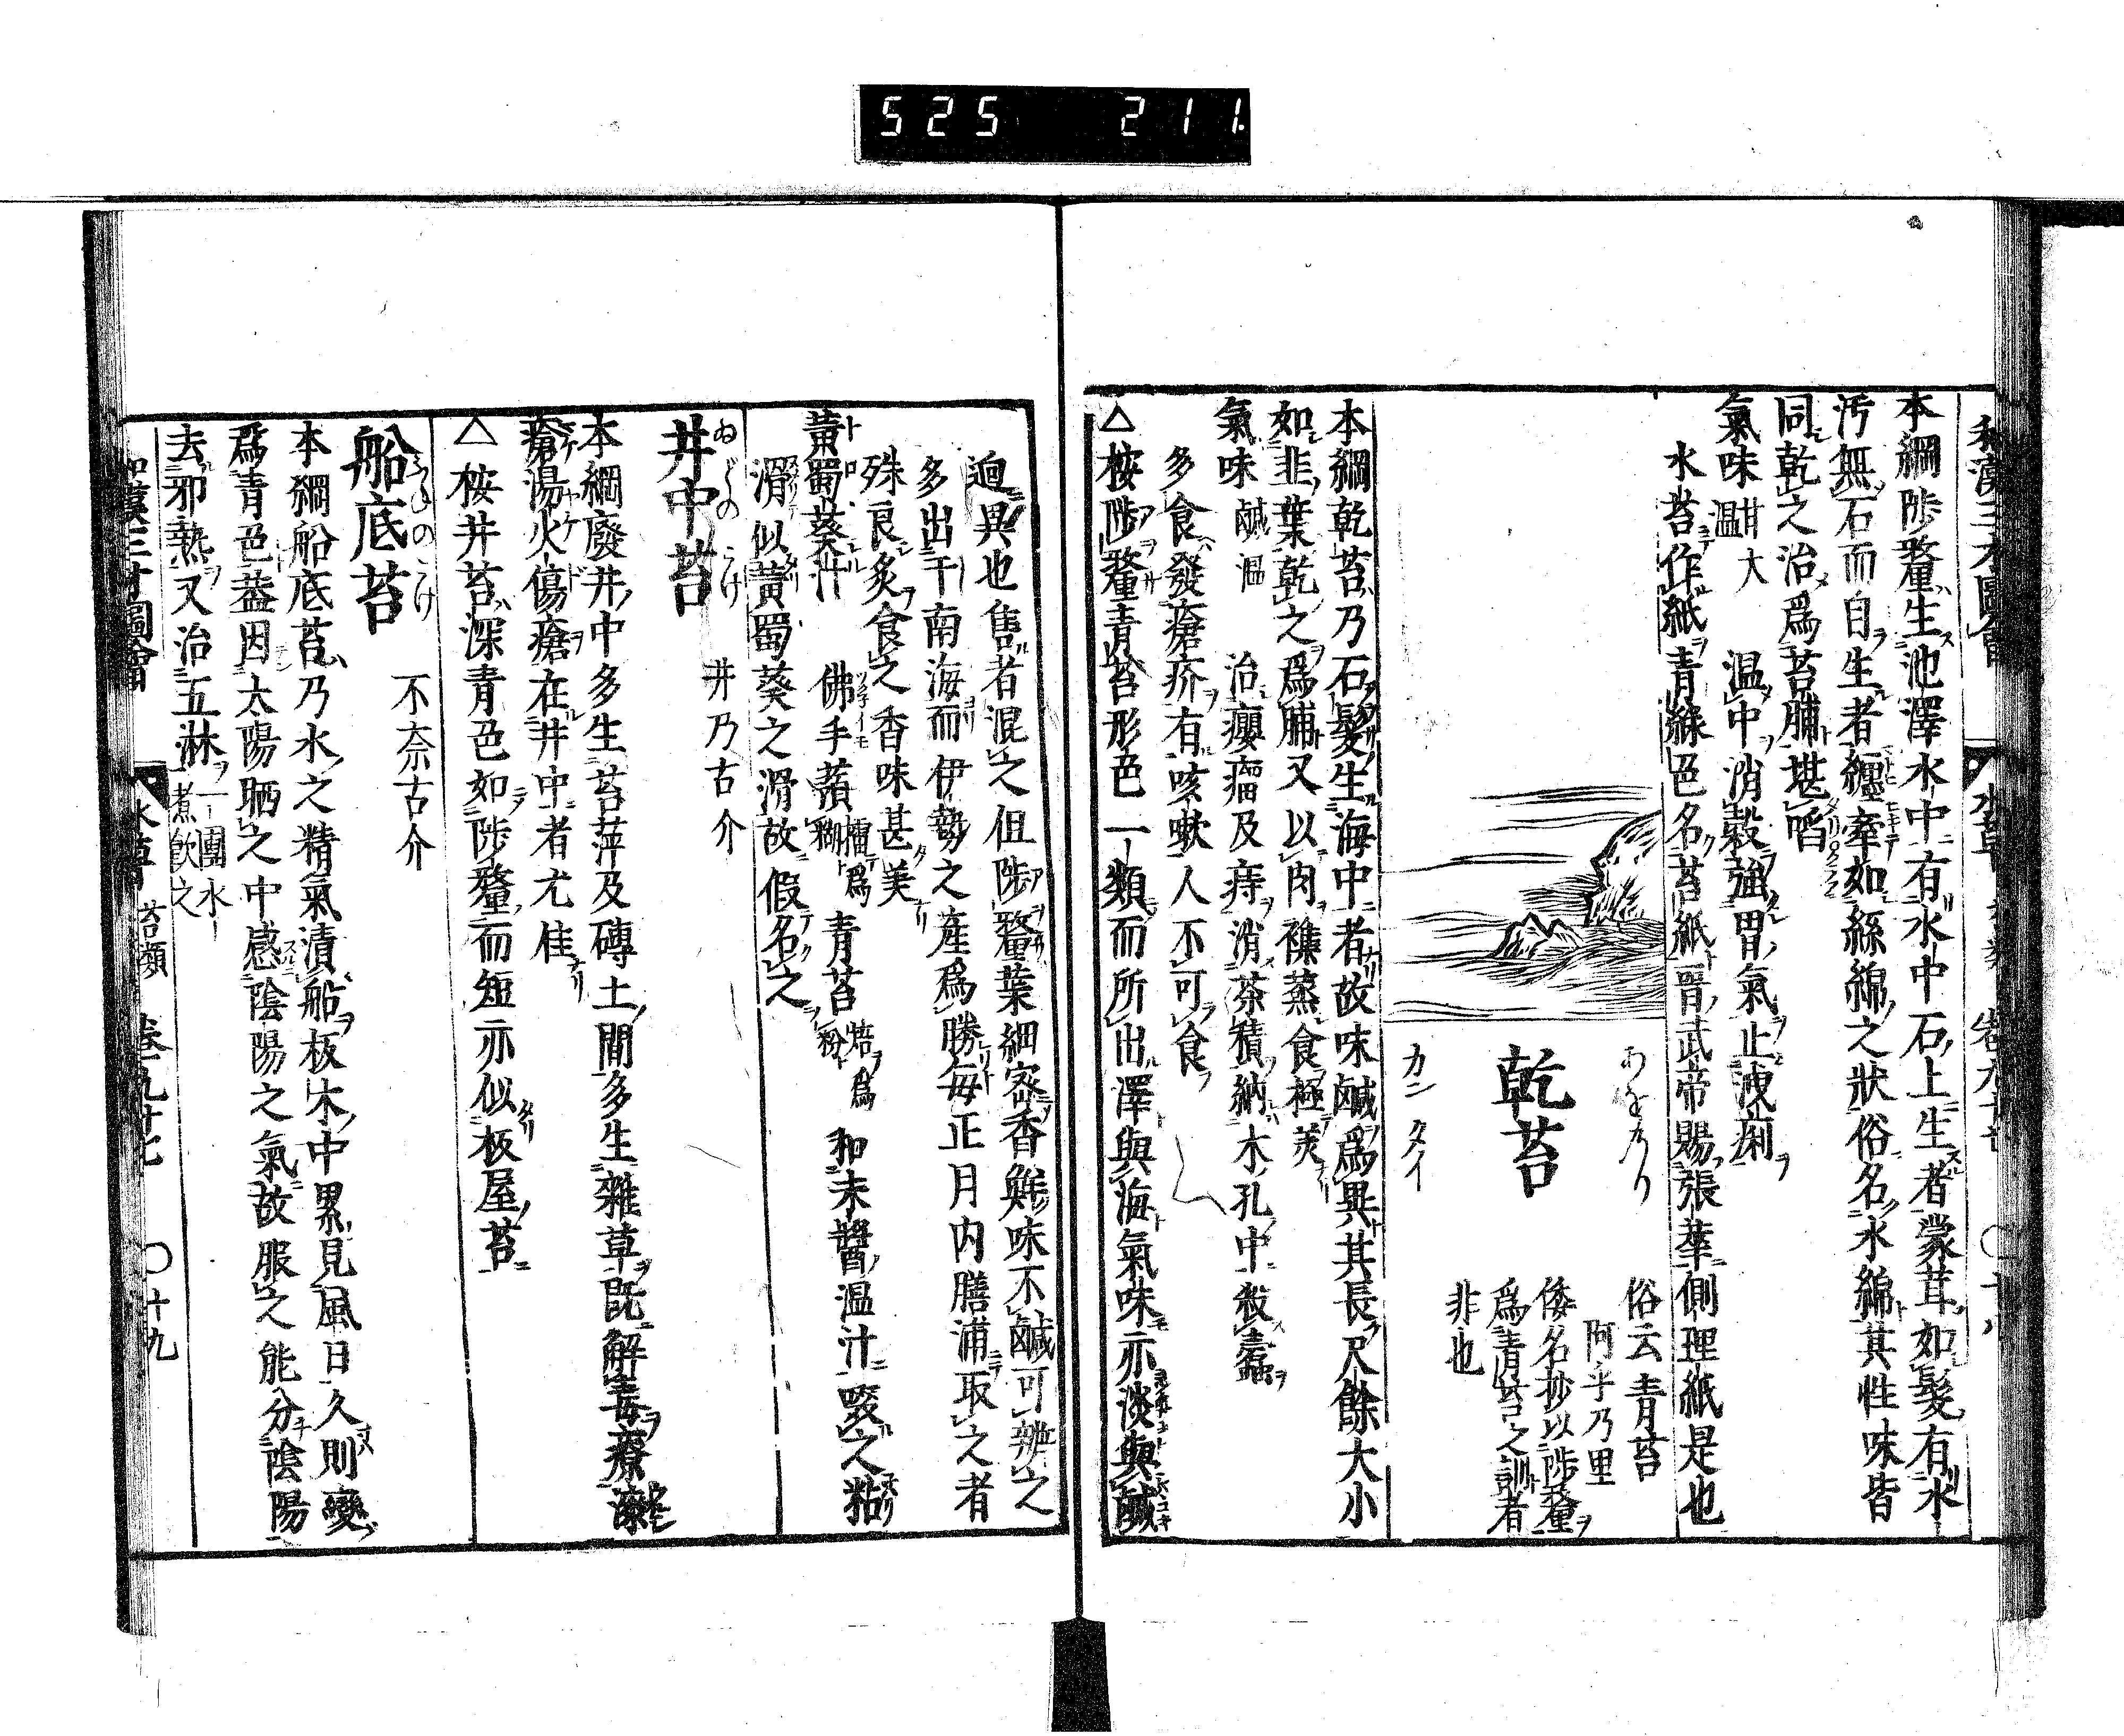 525 211
本綱陟釐生池澤水中有水中石上生者蒙茸如髮有水
汚無石而自生者纏牽如絲綿之狀俗名水綿其性味皆
同乾之治爲苔脯堪啗
氣味 甘大温 温中消穀強胃氣止洩痢
水苔作紙青緑色名苔紙晋武帝賜張華側理紙是也
あをのり
乾苔
カン タイ
俗云青苔
阿乎乃里
倭名抄以陟釐
爲青苔之訓者
非也
本綱乾苔乃石髮生海中者故味鹹爲異其長尺餘大小
如韭葉乾之爲脯又以肉襍蒸食極美
氣味 鹹温 治癭瘤及痔消茶積納木孔中殺蠧
多食發瘡疥有咳嗽人不可食
△桉陟釐青苔形色一類而所出澤與海氣味亦淡與鹹
迥異也售者混之但陟釐葉細密香鮮味不鹹可辨之
多出于南海而伊勢之産爲勝毎正月内膳浦取之者
殊良炙食之香味甚美
黃蜀葵汁 佛手蕷 擂爲糊 青苔 焙爲粉 和未醬温汁啜之粘
滑似黃蜀葵之滑故假名之
井中苔
ゐどのこけ
井乃古介
本綱廢井中多生苔萍及磚土間多生雜草既解毒療漆
瘡湯火傷瘡在井中者尤佳
△桉井苔深青色如陟釐而短亦似板屋苔
船底苔
ふねのこけ
不奈古介
本綱船底苔乃水之精氣漬船板木中累見風日久則變
爲青色蓋因太陽晒之中感陰陽之氣故服之能分陰陽
去邪熱又治五淋 一團水煮飮之
和漢三才圖會 水草 苔類 卷九十七 〇十九